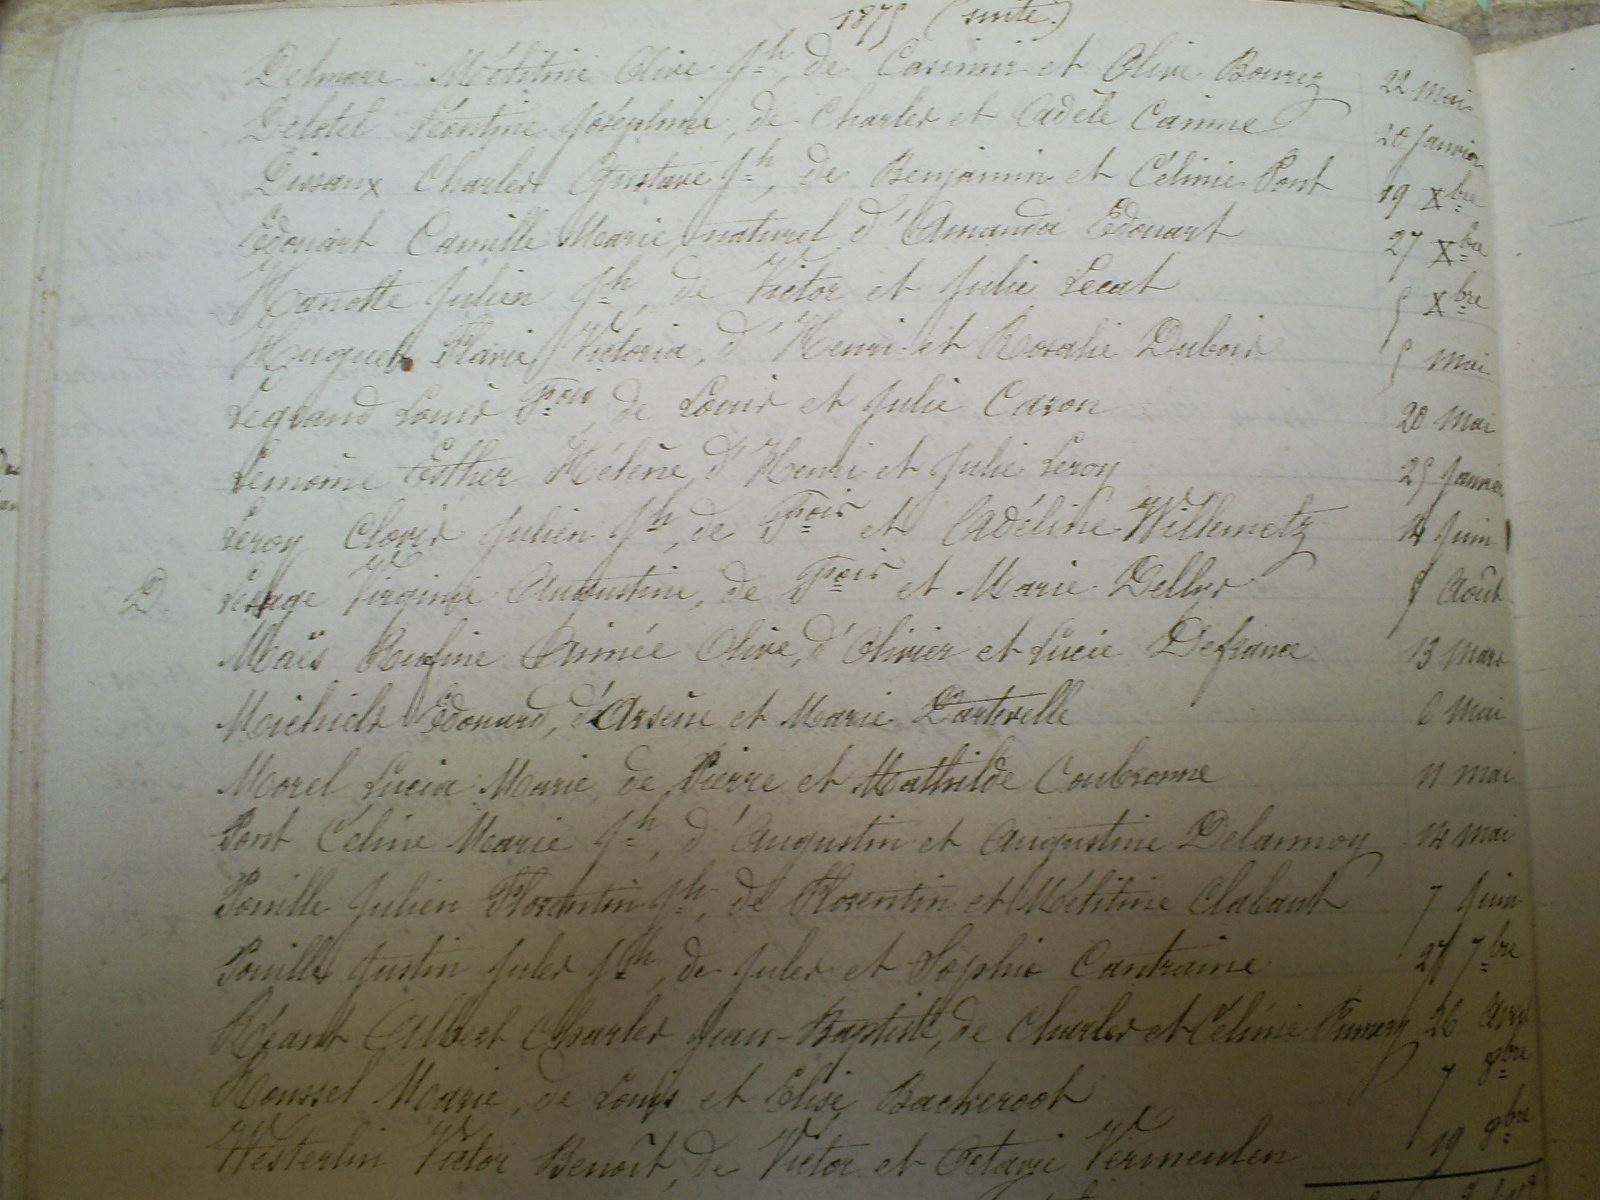 1875 (suite.)
Delmare Mélitine Olive Jh, de Casimir et Olive Bourez 22 mai
Delotel Léontine Joséphine, de Charles et Adèle Camine 20 Janvier
Dissaux Charles Gustave Jh, de Benjamin et Céline Pont 19 Xbre
Edouart Camille Marie, naturel d'Amanda Edouart 27 Xbre
Hanotte Julien Jh, de Victor et Julie Lecat 5 Xbre
Huguet Flavie Victoria, d'Henri et Rosalie Dubois 5 mai
Legrand Louis Fçois, de Louis et Julie Caron 20 mai
Lemoine Esther Hélène, d'Henri et Julie Leroy 25 Janvier
Leroy Clovis Julien Jh, de Fçois et Adéline Willemetz 14 Juin
D. Lesage Virginie Augustine, de Fçois et Marie Août
Maës Rufine Aimée Olive, d'Olivier et Lucie Defrance 13 Mars
Michiels Edouard, d'Arsène et Marie 6 Mai
Morel Lucia Marie, de Pierre et Mathilde Coubronne 11 mai
Pont Céline Marie Jh, d'Augustin et Augustine Delannoy 14 mai
Pouille Julien Florentin Jh, de Florentin et Mélitine Clabaut 7 Juin
Pouille Justin Jules Jph, de Jules et Sophie Cantraine 27 7bre
Réant Albert Charles Jean-Baptiste, de Charles et Célinie 26 Avril
Roussel Marie, de Louis et Elise Bacheroot 7 8bre
Westerlin Victor Benoît, de Victor et Octavie Vermeulen 19 8bre